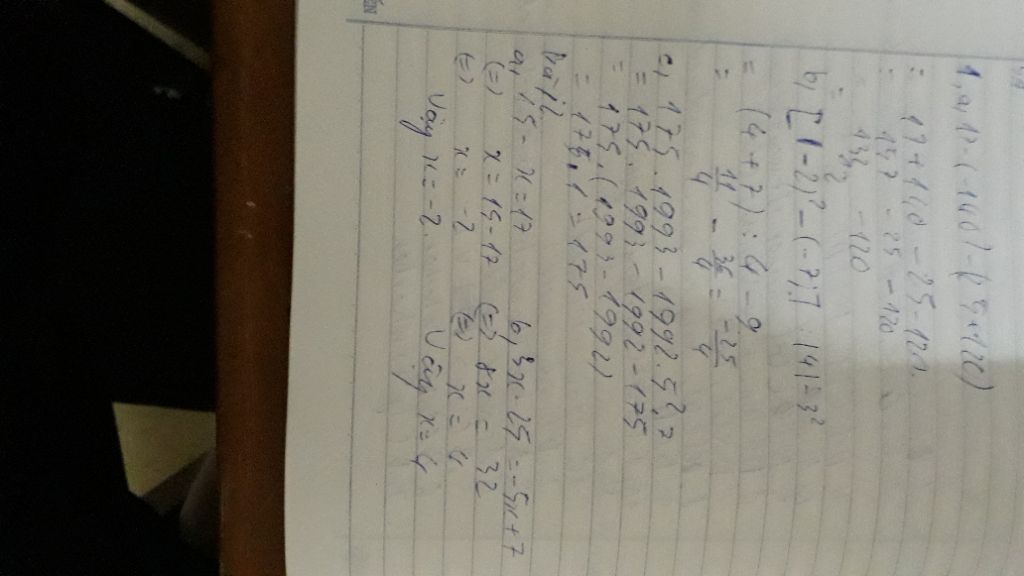 1, a, 17-(-140)-(25+120)
= 17+140-25-120
= 157 - 25 - 120
= 132 - 120
=
b, [(-2)² - (-7)] : |4| - 3²
= (4+7) : 4 - 9
= 11/4 - 36/4 = -25/4
c, 175 . 1993 - 1992 . 5² . 7
= 175 . 1993 - 1992 - 175
= 175 . (1993 - 1992)
= 175 . 1 = 175
Bài 2
a, 15 - x = 17 b, 3x - 25 = -5x + 7
(=) x = 15 - 17 (=) 8x = 32
(=) x = -2 (=) x = 4
Vậy x = -2 Vậy x = 4